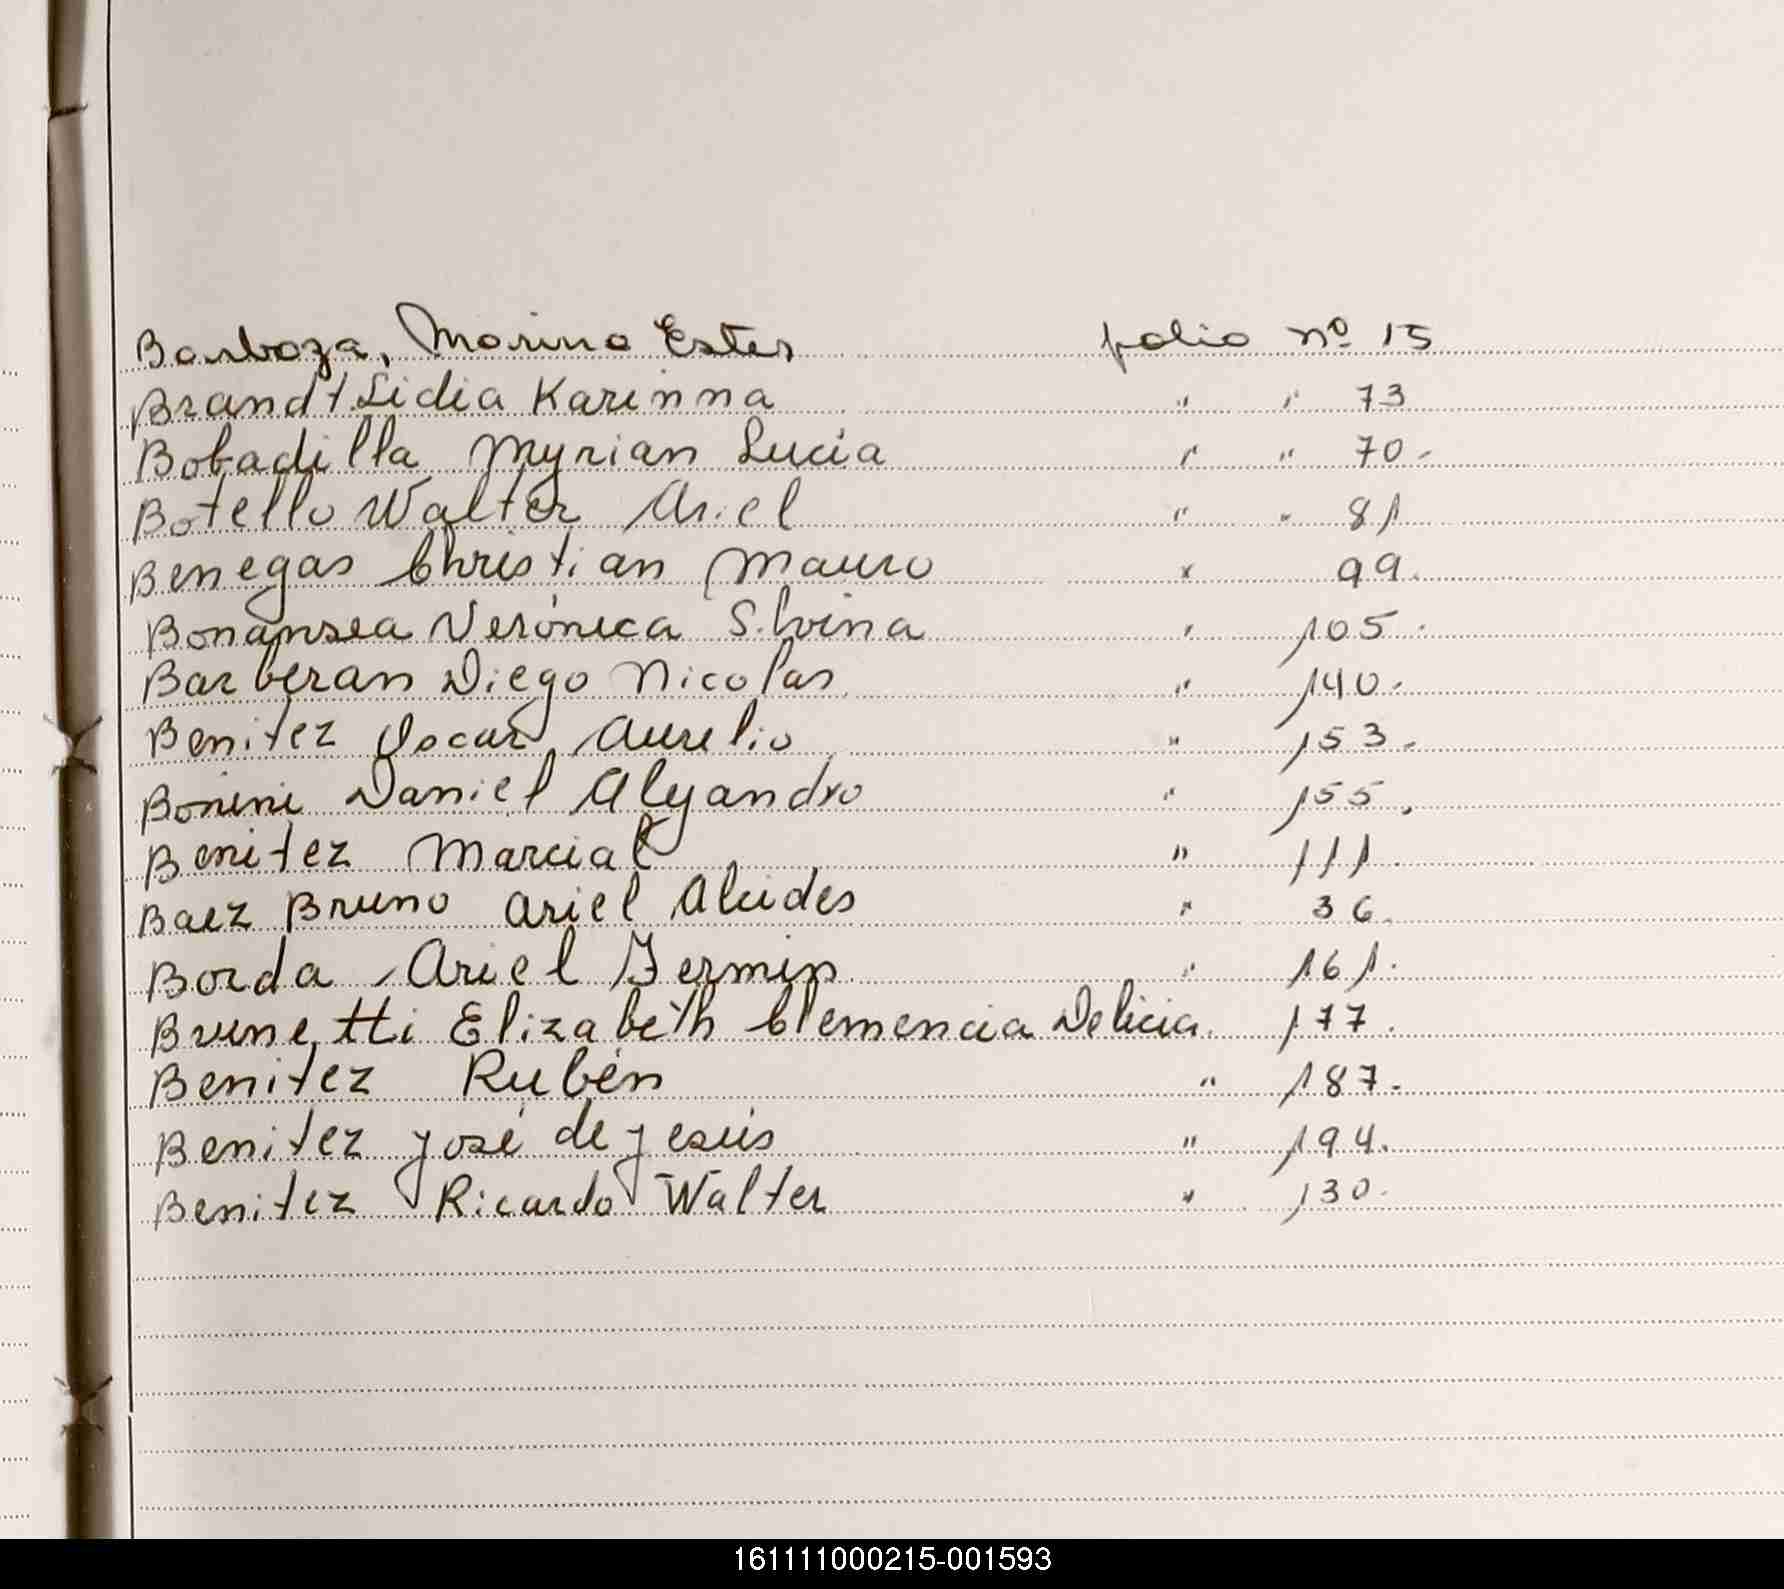 Barboza, Marina Ester folio nº 15
Brandt Lidia Karinna " " 73
Bobadilla Myrian Lucia " " 70.
Botello Walter Ariel " " 81
Benegas Christian Mauro " 99.
Bonansea Verónica Silvina " 105.
Barberan Diego Nicolas " 140.
Benitez Oscar Aurelio " 153.
Bonini Daniel Alejandro " 155.
Benitez Marcial " 111.
Baez Bruno Ariel Alcides " 36.
Borda Ariel Fermin " 161.
Brunetti Elizabeth Clemencia Delicia. 177.
Benitez Rubén " 187.
Benitez José de Jesús " 194.
Benitez Ricardo Walter " 130.
161111000215-001593